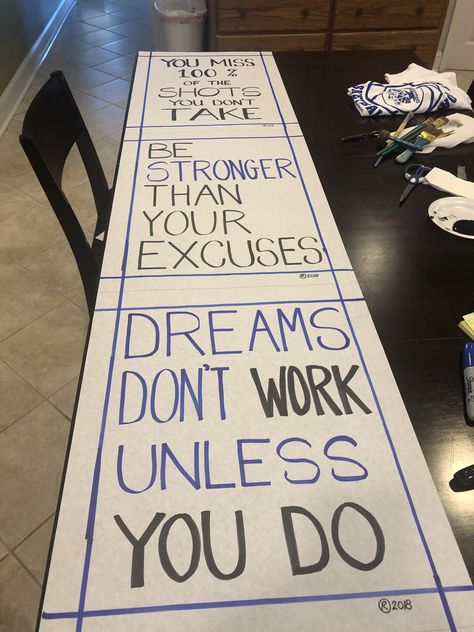 YOU MISS
100 %
OF THE
SHOTS
YOU DON'T
TAKE
BE
STRONGER
THAN
YOUR
EXCUSES
®2018
DREAMS
DON'T WORK
UNLESS
YOU DO
®2018